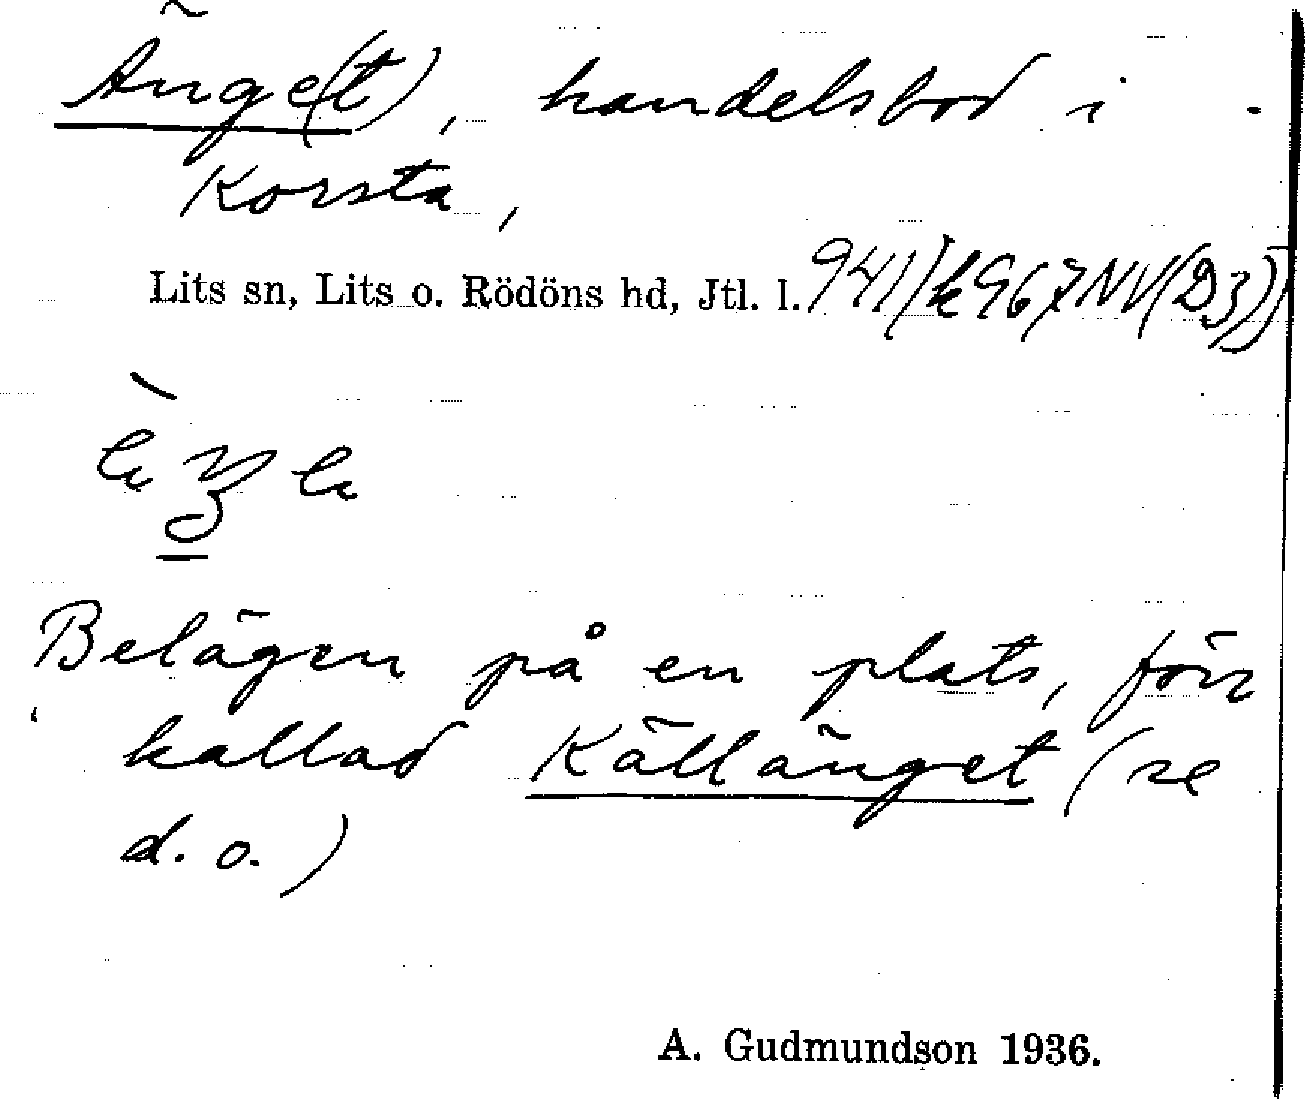 Änge(t), handelsbod i
Korsta,
Lits sn, Lits o. Rödöns hd, Jtl. l.
Belägen på en plats, förr
kallad Källänget (se
d. o.)
A. Gudmundson 1936.